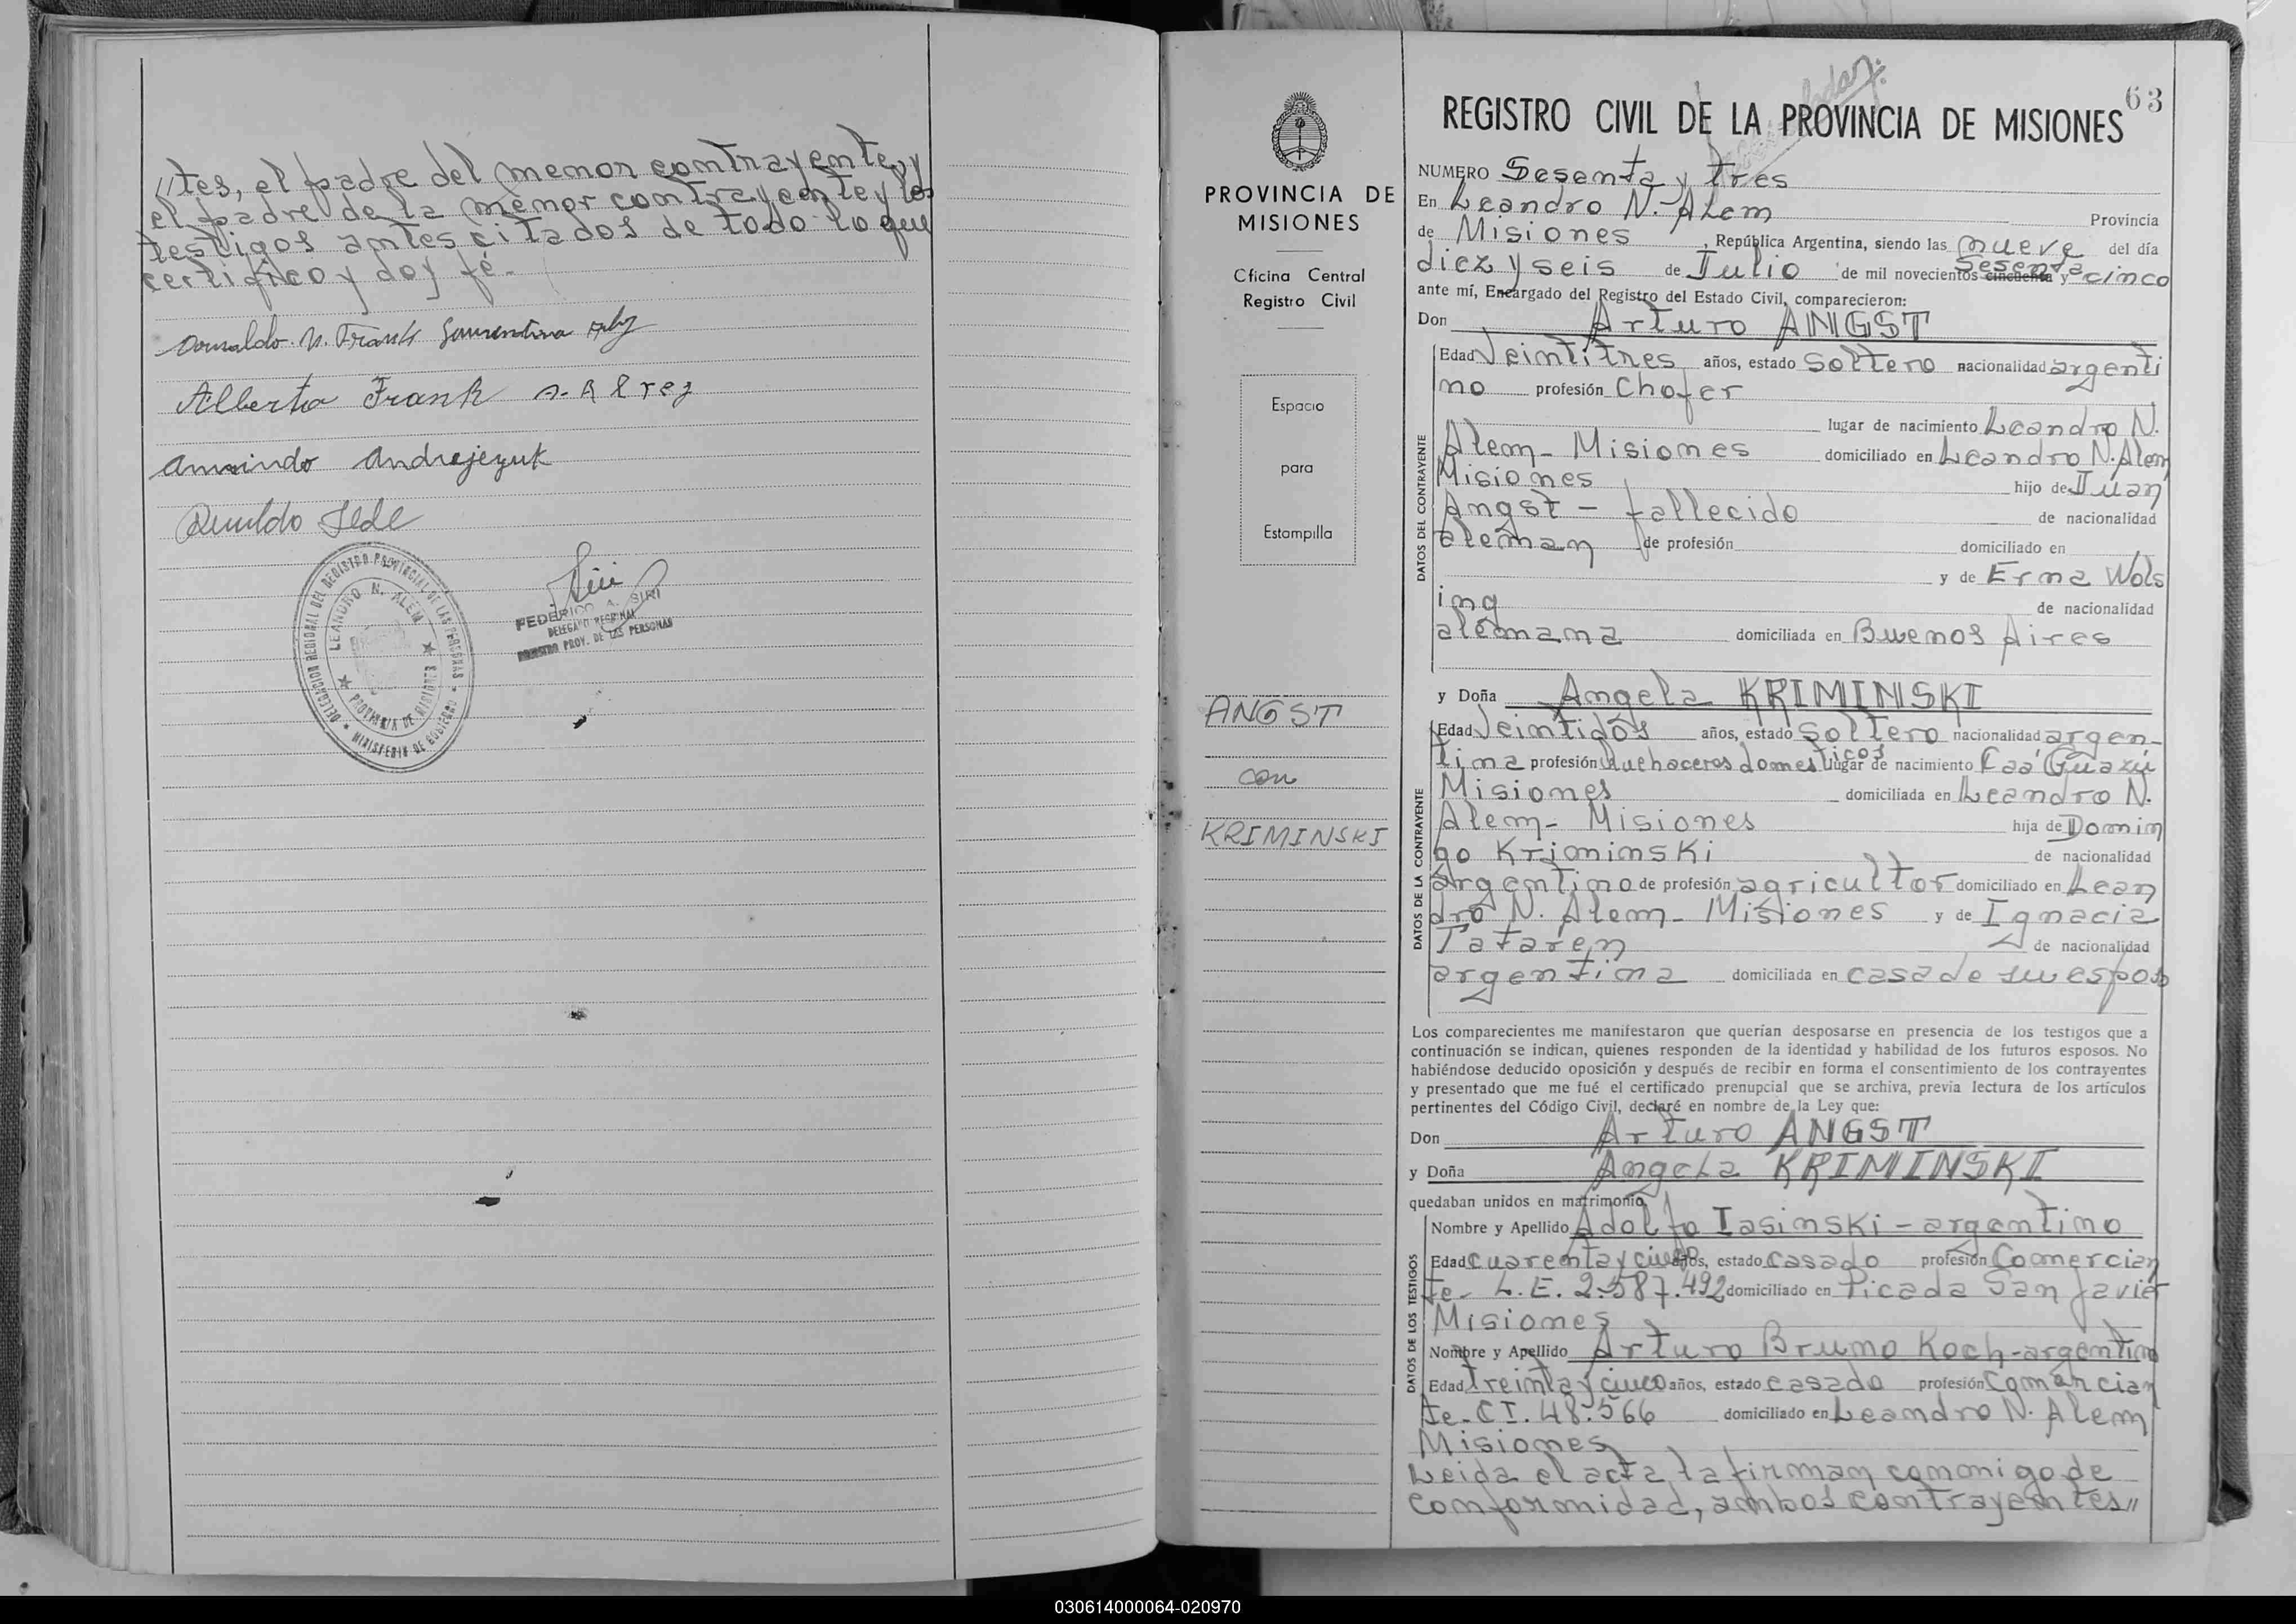 //tes, el padre del menor contrayente, y
el padre de la menor contrayente y los
testigos antes citados de todo lo que
certifico y doy fé.-
Alberto Frank
Armindo Andrejezuk
FEDERICO A. SIRI
DELEGADO REGIONAL
REGISTRO PROV. DE LAS PERSONAS
DELEGACION REGIONAL DEL REGISTRO PROVINCIAL DE LAS PERSONAS
MINISTERIO DE GOBIERNO
LEANDRO N. ALEM
PROVINCIA DE MISIONES
PROVINCIA DE
MISIONES
Oficina Central
Registro Civil
Espacio
para
Estampilla
ANGST
con
KRIMINSKI
63
REGISTRO CIVIL DE LA PROVINCIA DE MISIONES
NUMERO Sesenta y tres
En Leandro N. Alem Provincia
de Misiones, República Argentina, siendo las nueve del día
diez y seis de Julio de mil novecientos cincuenta sesenta y cinco
ante mí, Encargado del Registro del Estado Civil, comparecieron:
Don Arturo ANGST
DATOS DEL CONTRAYENTE
Edad Veintitres años, estado soltero nacionalidad argenti
no profesión Chofer
lugar de nacimiento Leandro N.
Alem- Misiones domiciliado en Leandro N. Alem
Misiones hijo de Juan
Angst - fallecido de nacionalidad
aleman de profesión domiciliado en
y de Erma Wols
ing de nacionalidad
alemana domiciliada en Buenos Aires
y Doña Angela KRIMINSKI
DATOS DE LA CONTRAYENTE
Edad Veintidós años, estado soltero nacionalidad argen-
tina profesión Quehaceres domesticos lugar de nacimiento Caá Guazú
Misiones domiciliada en Leandro N.
Alem- Misiones hija de Domin
go Kriminski de nacionalidad
argentino de profesión agricultor domiciliado en Lean
dro N. Alem- Misiones y de Ignacia
Tataren de nacionalidad
argentina domiciliada en casa de su esposo
Los comparecientes me manifestaron que querían desposarse en presencia de los testigos que a
continuación se indican, quienes responden de la identidad y habilidad de los futuros esposos. No
habiéndose deducido oposición y después de recibir en forma el consentimiento de los contrayentes
y presentado que me fué el certificado prenupcial que se archiva, previa lectura de los artículos
pertinentes del Código Civil, declaré en nombre de la Ley que:
Don Arturo ANGST
y Doña Angela KRIMINSKI
quedaban unidos en matrimonio.
DATOS DE LOS TESTIGOS
Nombre y Apellido Adolfo Iasinski - argentino
Edad cuarenta y cinco años, estado casado profesión Comercian
te- L.E. 2.587.492 domiciliado en Picada San Javier
Misiones
Nombre y Apellido Arturo Bruno Koch-argentino
Edad treinta y cinco años, estado casado profesión Comercian
te- CI. 48.566 domiciliado en Leandro N. Alem
Misiones
Leida el acta la firman conmigo de
conformidad, ambos contrayentes//
030614000064-020970